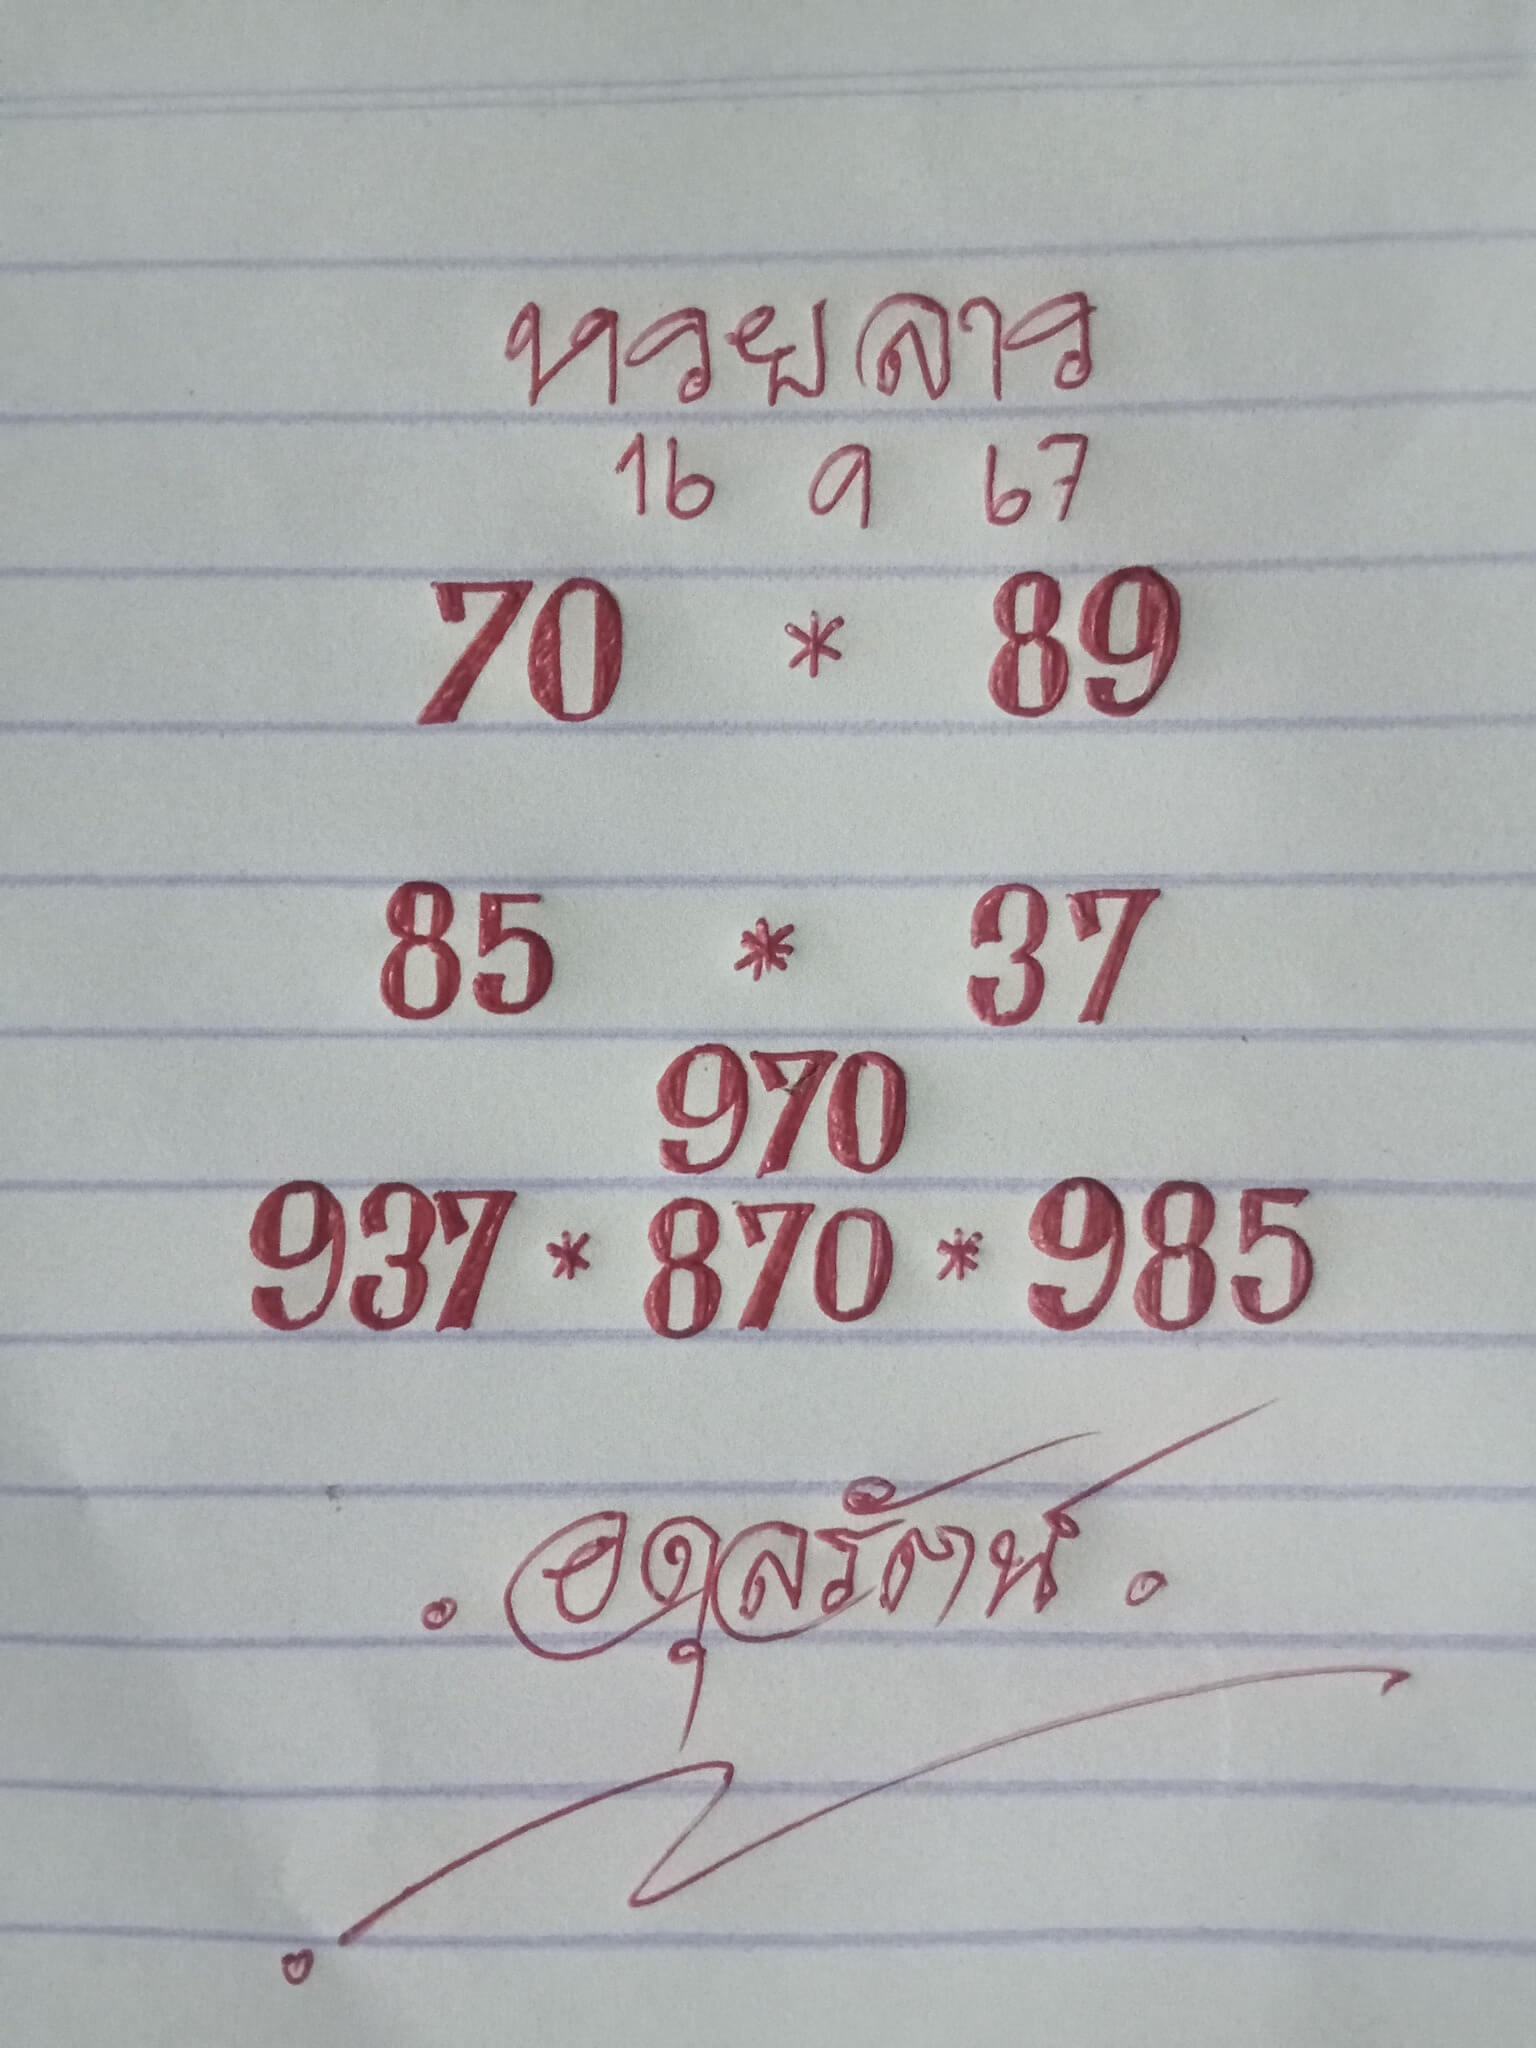 หวยลาว
16 9 67
70 * 89
85 * 37
970
937 * 870 * 985
. อดุลรัตน์ .